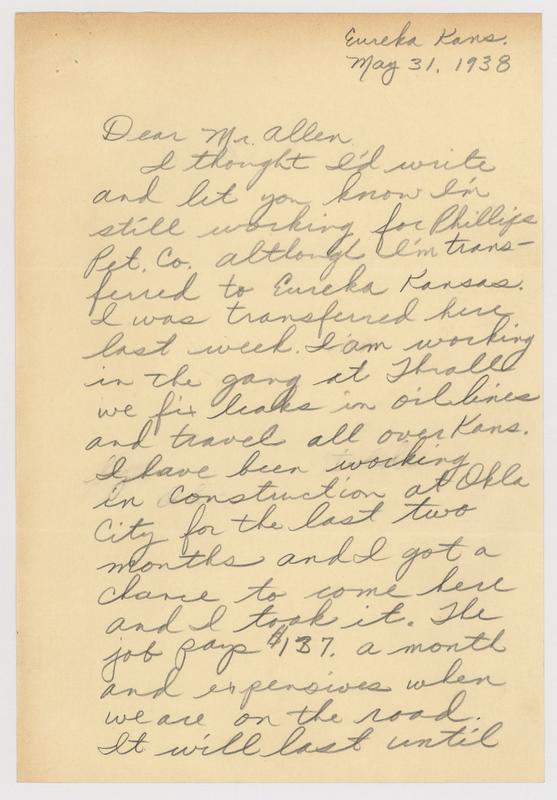 Eureka Kans.
May 31, 1938
Dear Mr. Allen
I thought I'd write
and let you know I'm
still working for Phillips
Pet. Co. although I'm trans-
ferred to Eureka Kansas.
I was transferred here
last week. I am working
in the gang at Thrall
we fix leaks in oil lines
and travel all over Kans.
I have been working
in construction at Okla
City for the last two
months and I got a
chance to come here
and I took it. The
job pays $137. a month
and expensives when
we are on the road.
It will last until